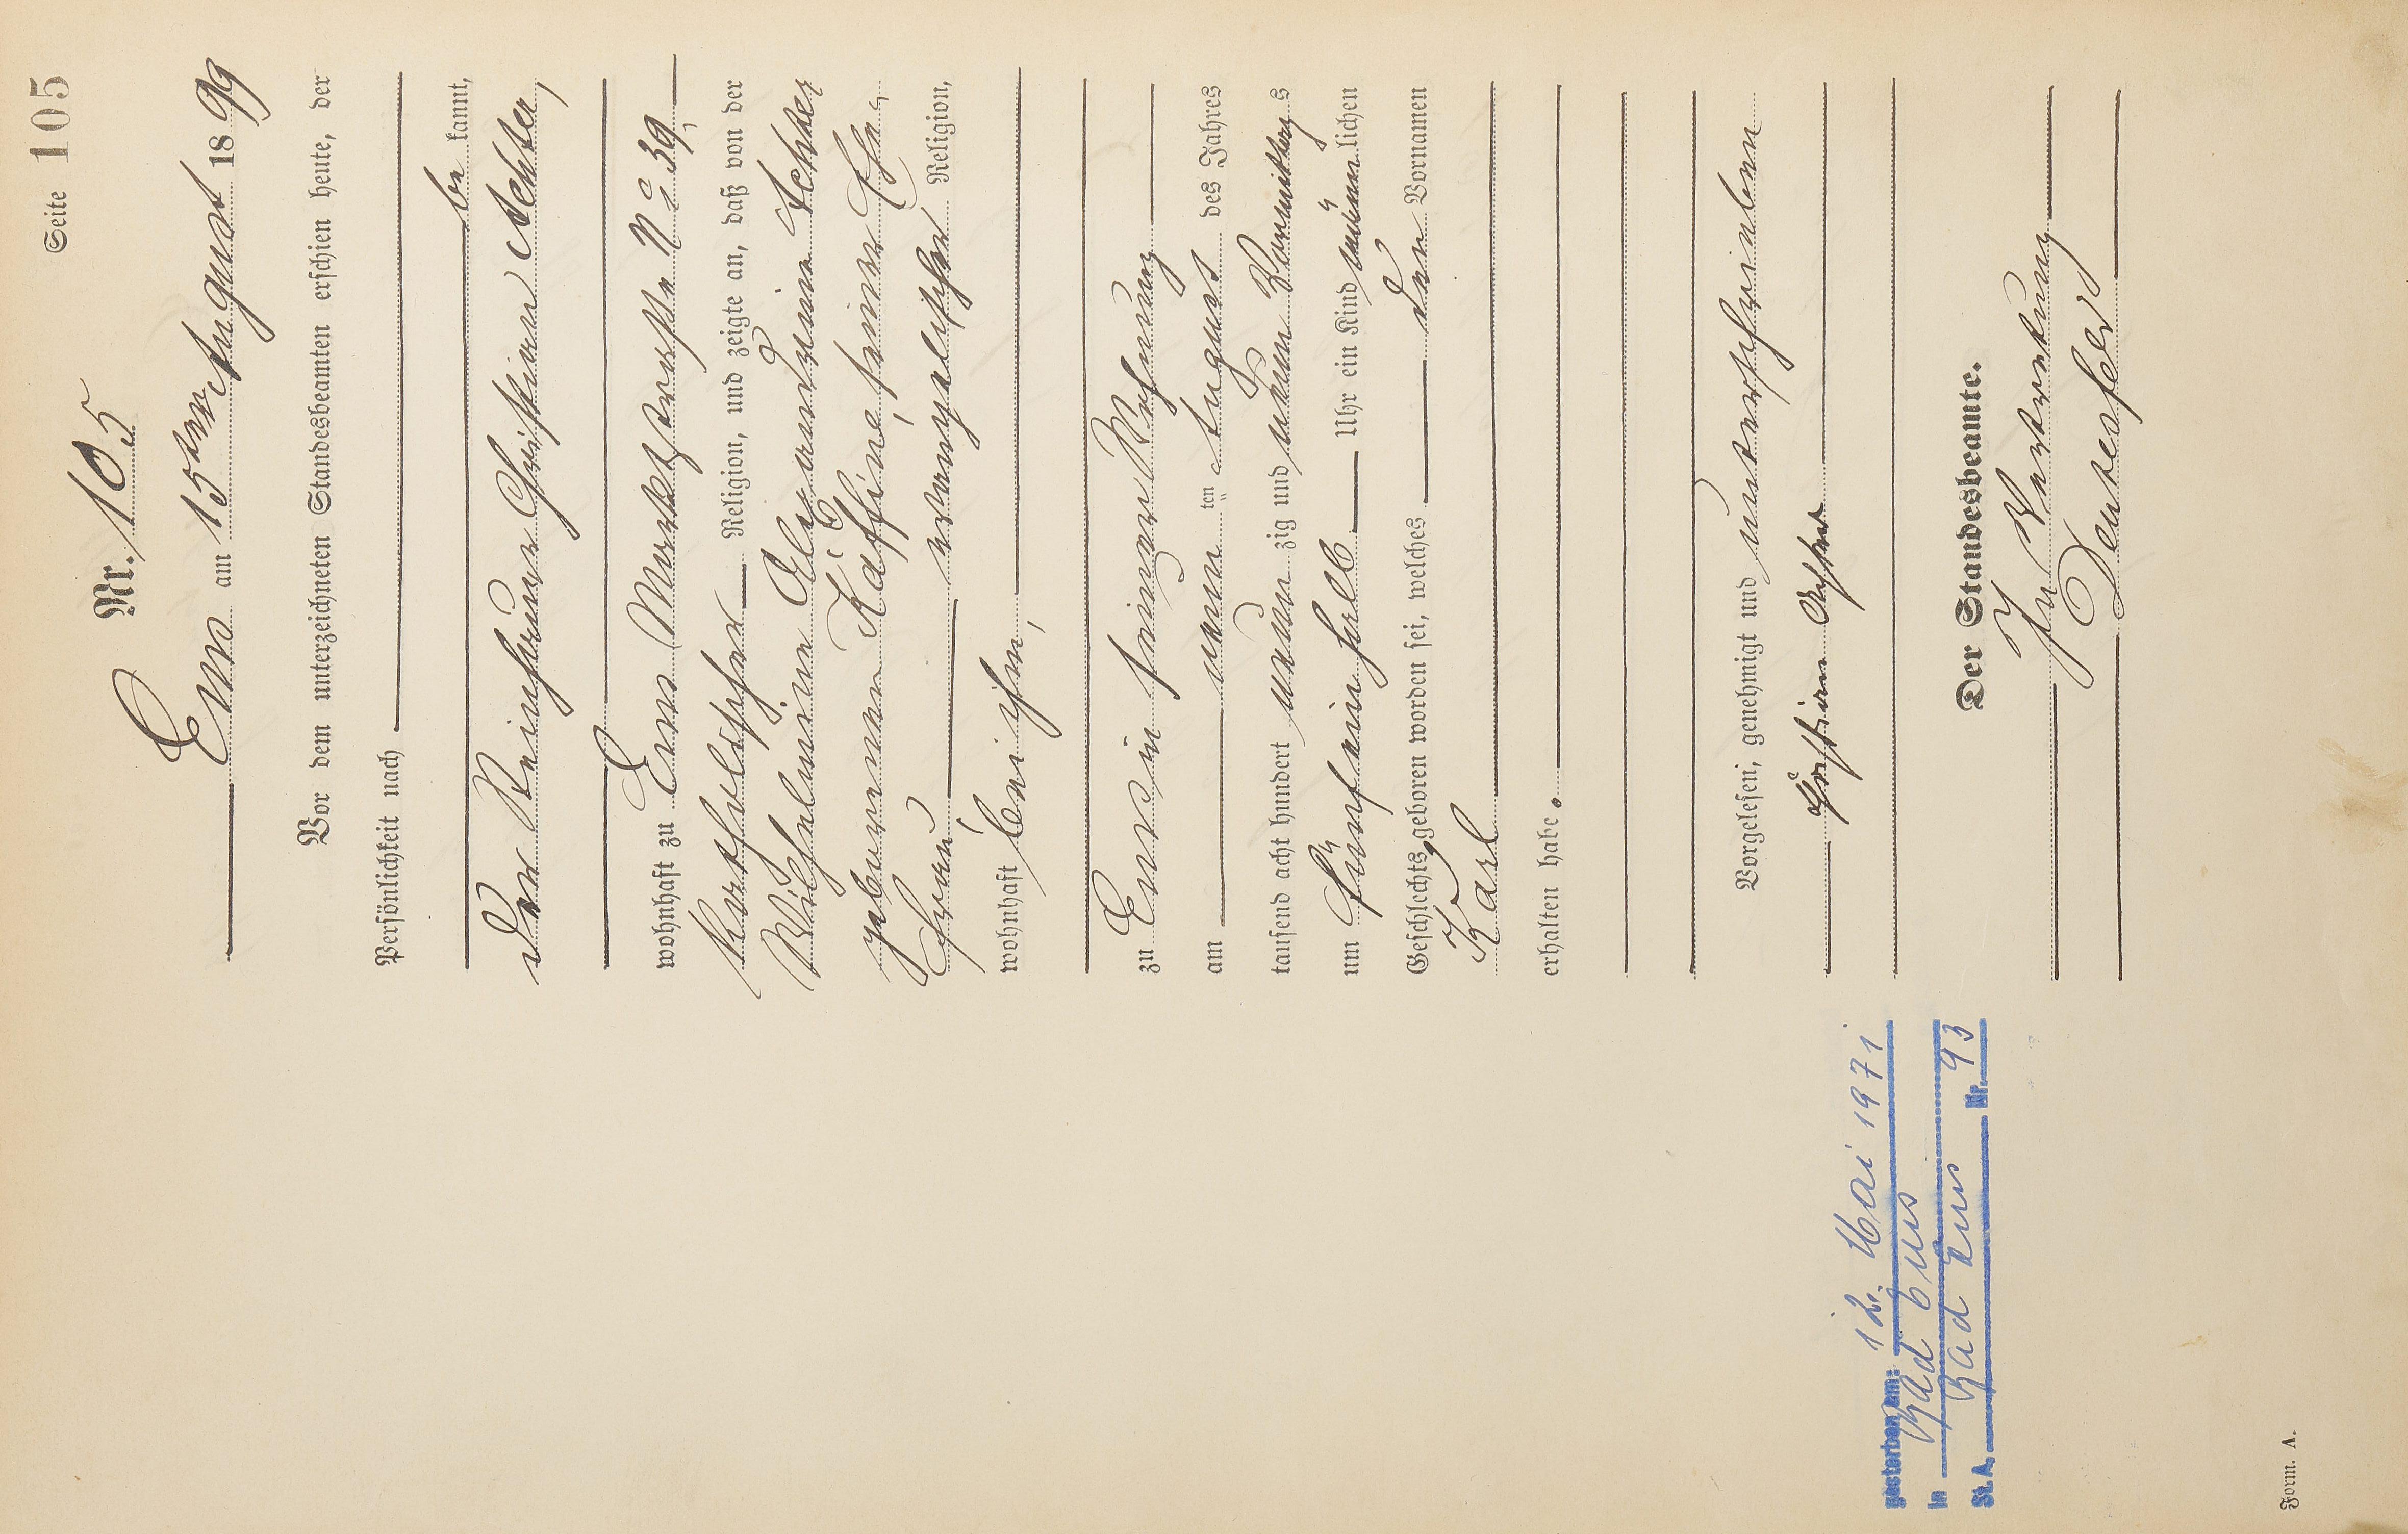 Seite 105
Nr. 105
Ems am 15ten August 1899
Vor dem unterzeichneten Standesbeamten erschien heute, der
Persönlichkeit nach
be kannt,
der Christian Achter,
wohnhaft zu Ems Marktstraße No 39,
katholischer Religion, und zeigte an, daß von der
Wilhelmine Achter
geborenen seiner Ehe-
frau evangelischer Religion,
wohnhaft bei ihm,
zu Ems in seiner Wohnung
am neun ten August des Jahres
tausend acht hundert neun zig und neun Vormittags
um fünfeinhalb Uhr ein Kind männlichen
Geschlechts geboren worden sei, welches den Vornamen
Karl
erhalten habe.
Vorgelesen, genehmigt und unterschrieben
Christian Achter
Der Standesbeamte.
In Vertretung
gestorben am: 12. Mai 1971
in Bad Ems
St. A. Bad Ems Nr. 93
Form. A.